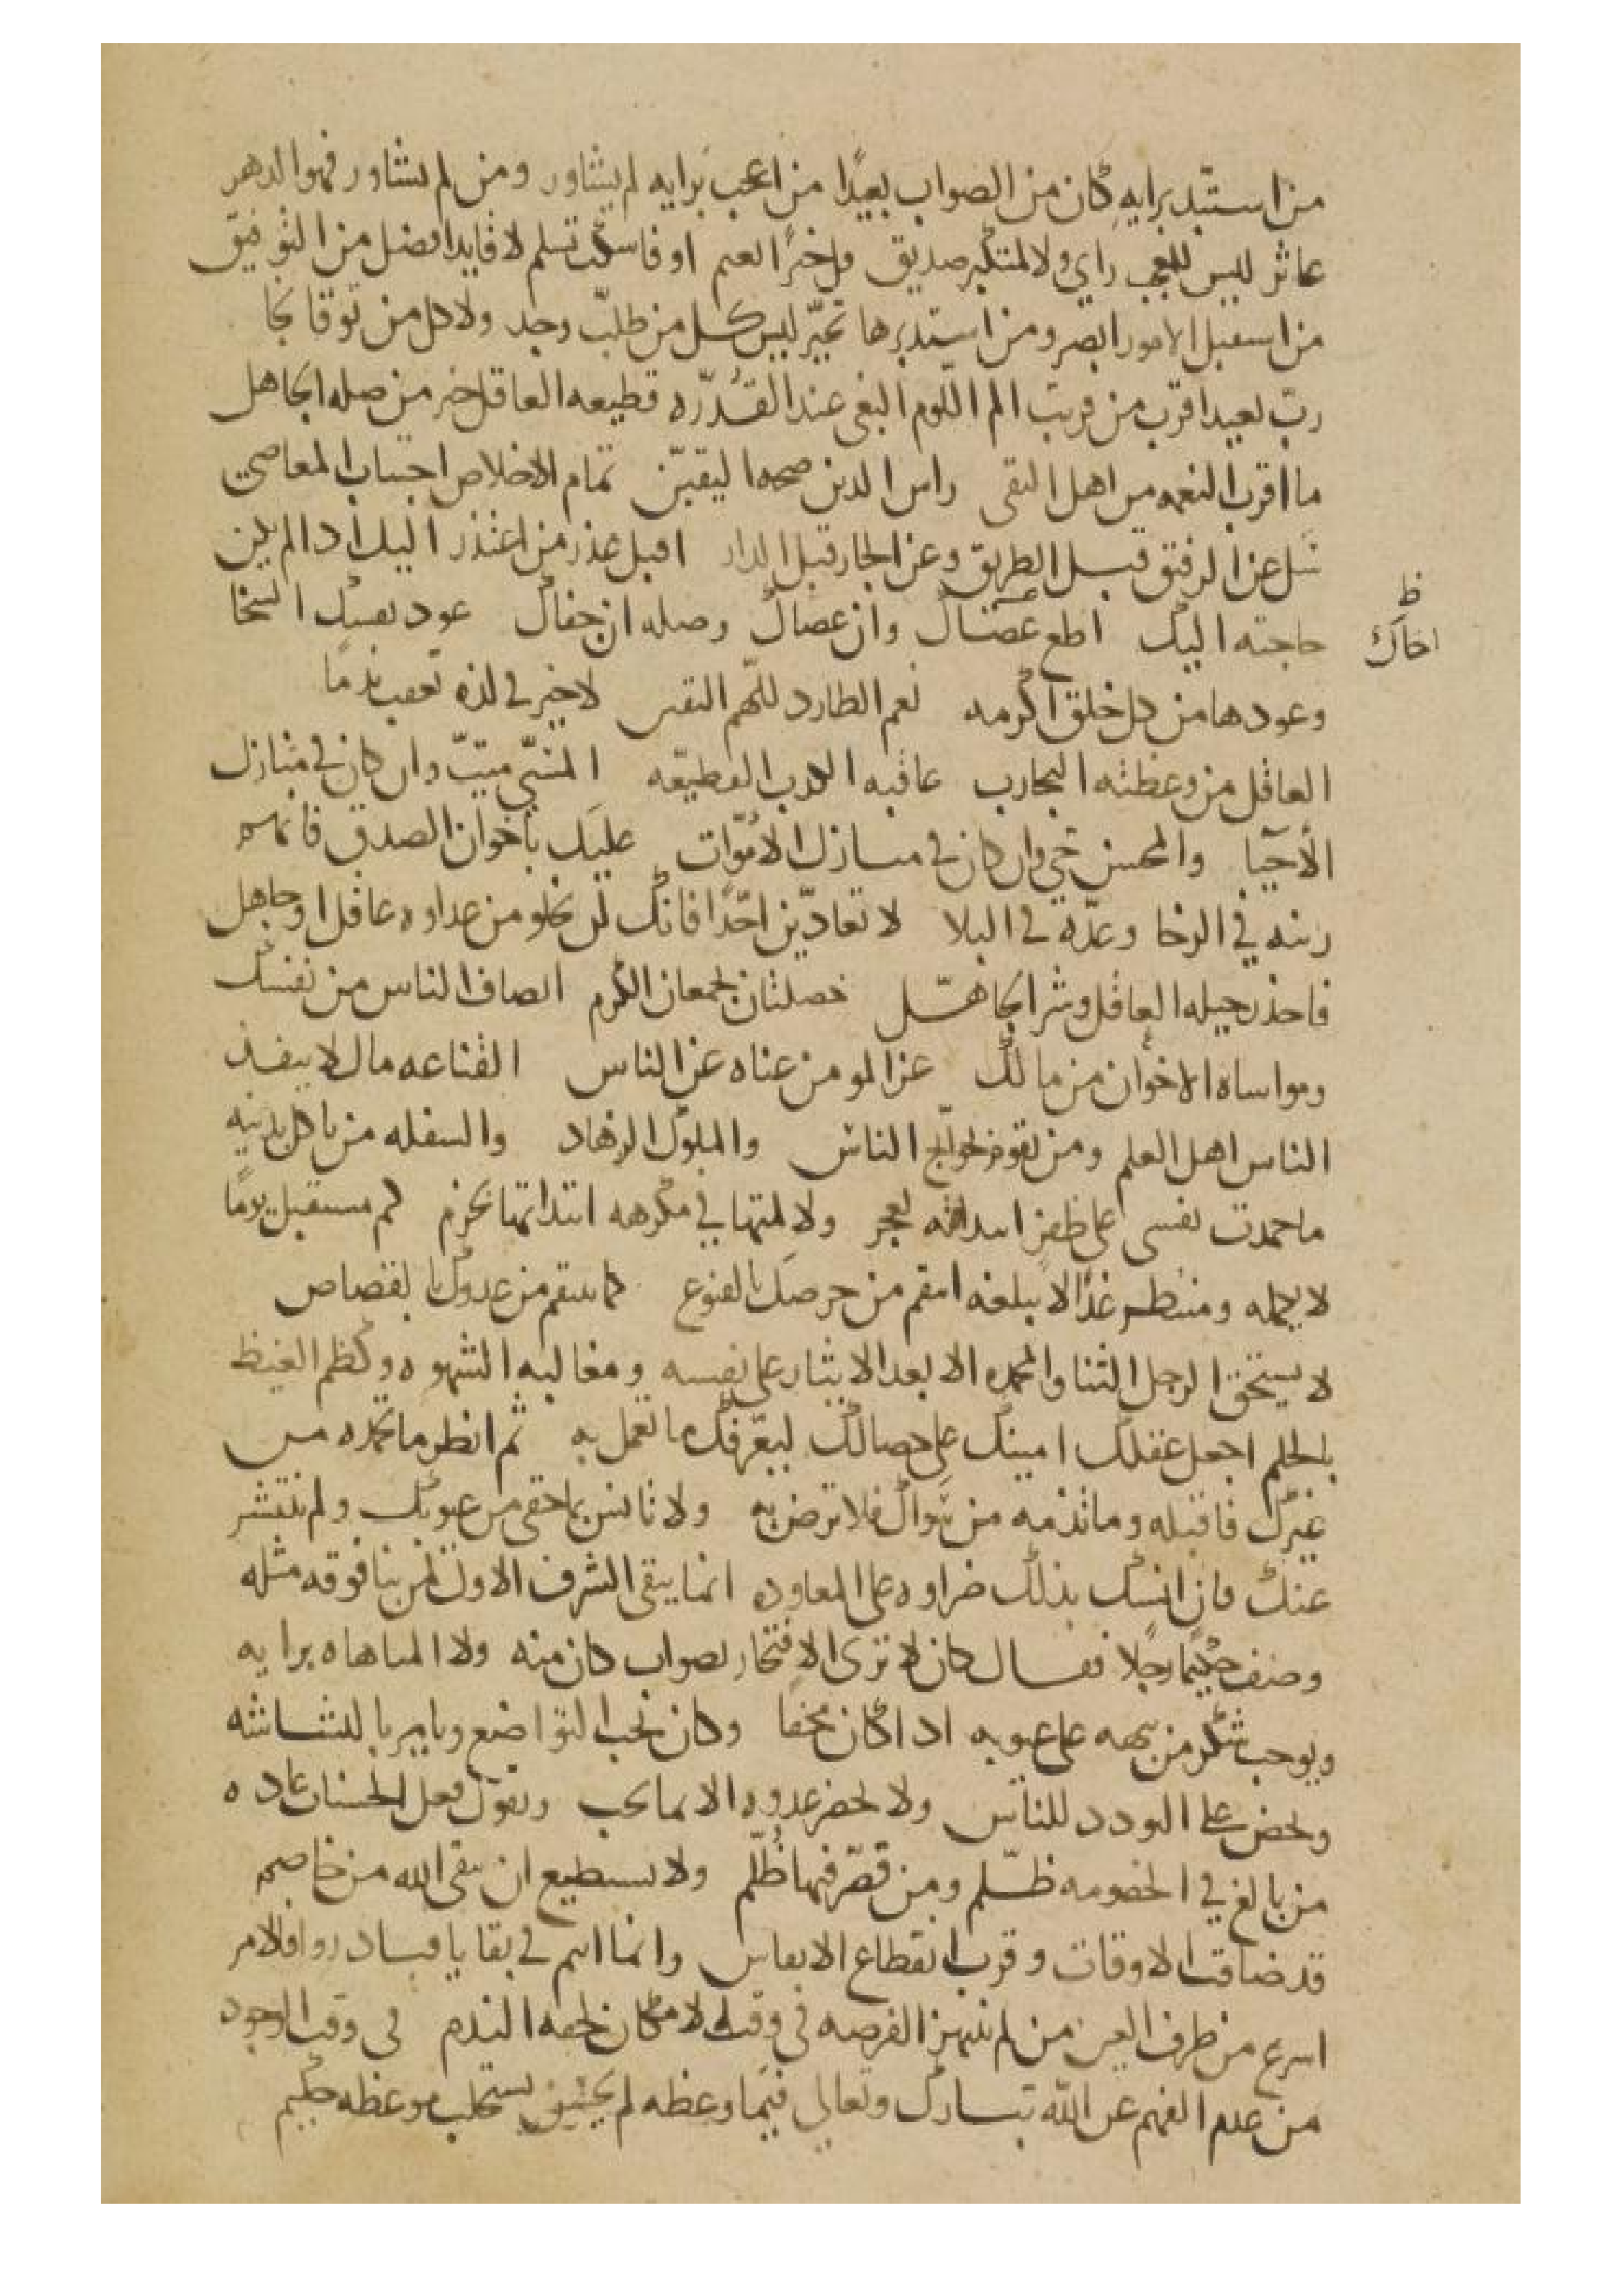 من استبد برايه كان من الصواب بعيدا من اعجب برايه لم يشاور ومن لم يشاور فهو الدهر
عاثر ليس للمعجب راي ولا لمتكبر صديق قل خيرا تغنم او فاسكت تسلم لا فايدا افضل من التوفيق
من استقبل الامور ابصر ومن استدبرها تحير ليس كل من طلب وجد ولا كل من توقا نجا
رب بعيد اقرب من قريب الم اللوم البغي عند القدره قطيعه العاقل خير من صله الجاهل
ما اقرب النعمه من اهل التقى راس الدين صحه اليقين تمام الاخلاص اجتناب المعاصي
سل عن الرفيق قبل الطريق وعن الجار قبل الدار اقبل عذر من اعتذر اليك اد الم يلين
حاجته اليك اطع وان عصاك وصله ان جفاك عود نفسك السخا
اخاك ظ
وعودها من كل خلق اكرمه نعم الطارد للهم اليقين لا خير في لذه تعقب ندما
العاقل من وعظته التجارب عاقبه الكدب القطيعه المسي ميت وان كان في منازل
الاحيا والمحسن حي وان كان في منازل الاموات عليك باخوان الصدق فانهم
زينه في الرخا وعده في البلا لا تعادين احدا فانك لن تخلو من عداوه عاقل او جاهل
فاحذر حيله العاقل وشر الجاهل خصلتان تجمعان الكرم انصاف الناس من نفسك
ومواساه الاخوان من مالك عز المومن غناه عن الناس القناعه مال لا ينفذ
الناس اهل العلم ومن يقوم بحوايج الناس والملوك الزهاد والسفله من ياكل بدينه
ما حمدت نفسي على ظفر ابتداته بعجز ولا لمتها في مكرهه ابتداتها بحزم كم مستقبل يوما
لا يكمله ومنتظر غدا لا يبلغه انتقم من حرصك بالقنوع كما تنتقم من عدوك بالقصاص
لا يستحق الرجل الثنا والمحمده الا بعد الايثار على نفسه ومغالبه الشهوه وكظم الغيظ
بالحلم اجعل عقلك امينك على خصالك ليعرفك ما تعمل به ثم انظر ما تحمده من
غيرك فاقبله وما تذمه من سواك فلا ترض به ولا تانس بما خفي من عيوبك ولم ينتشر
عنك فان انسك بذلك ضراوه على المعاوده انما يبقى الشرف الاول لمن بنا فوقه مثله
وصف حكيما رجلا فقال كان لا يرى الافتخار بصواب كان منه ولا المباهاه برايه
ويوجب شكر من نبهه على عيوبه اد اكان مخفا وكان يحب التواضع ويامر بالبشاشه
ويحض على التودد للناس ولا يحضر عدوه الا بما يحب ويقول فعل الحسنات عاده
من بالغ في الخصومه ظلم ومن قصر فيها ظلم ولا يستطيع ان يتقي الله من خاصم
قد ضاقت الاوقات وقرب انقطاع الانفاس وانما انتم في بقايا فبادروا فالامر
اسرع من طرف العين من لم ينتهز الفرصه في وقت الامكان لحقه الندم في وقت الوجود
من عدم الفهم عن الله تبارك وتعالى فيما وعظه لم يستجلب موعظه حكيم